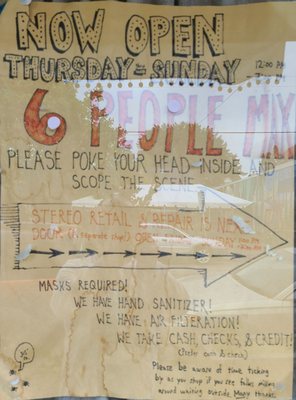 NOW OPEN
THURSDAY SUNDAY
12:00 PM
6 PEOPLE MAX
PLEASE POKE YOUR HEAD INSIDE AND
SCOPE THE SCENE
STEREO RETAIL & REPAIR IS NEXT
DOOR
MASKS REQUIRED!
WE HAVE HAND SANITIZER!
WE HAVE AIR FILTERATION!
WE TAKE CASH, CHECKS, & CREDIT!
(Prefer cash & check)
Please be aware of time ticking
by as you shop if you see folks milling
around waiting outside. Many thanks.